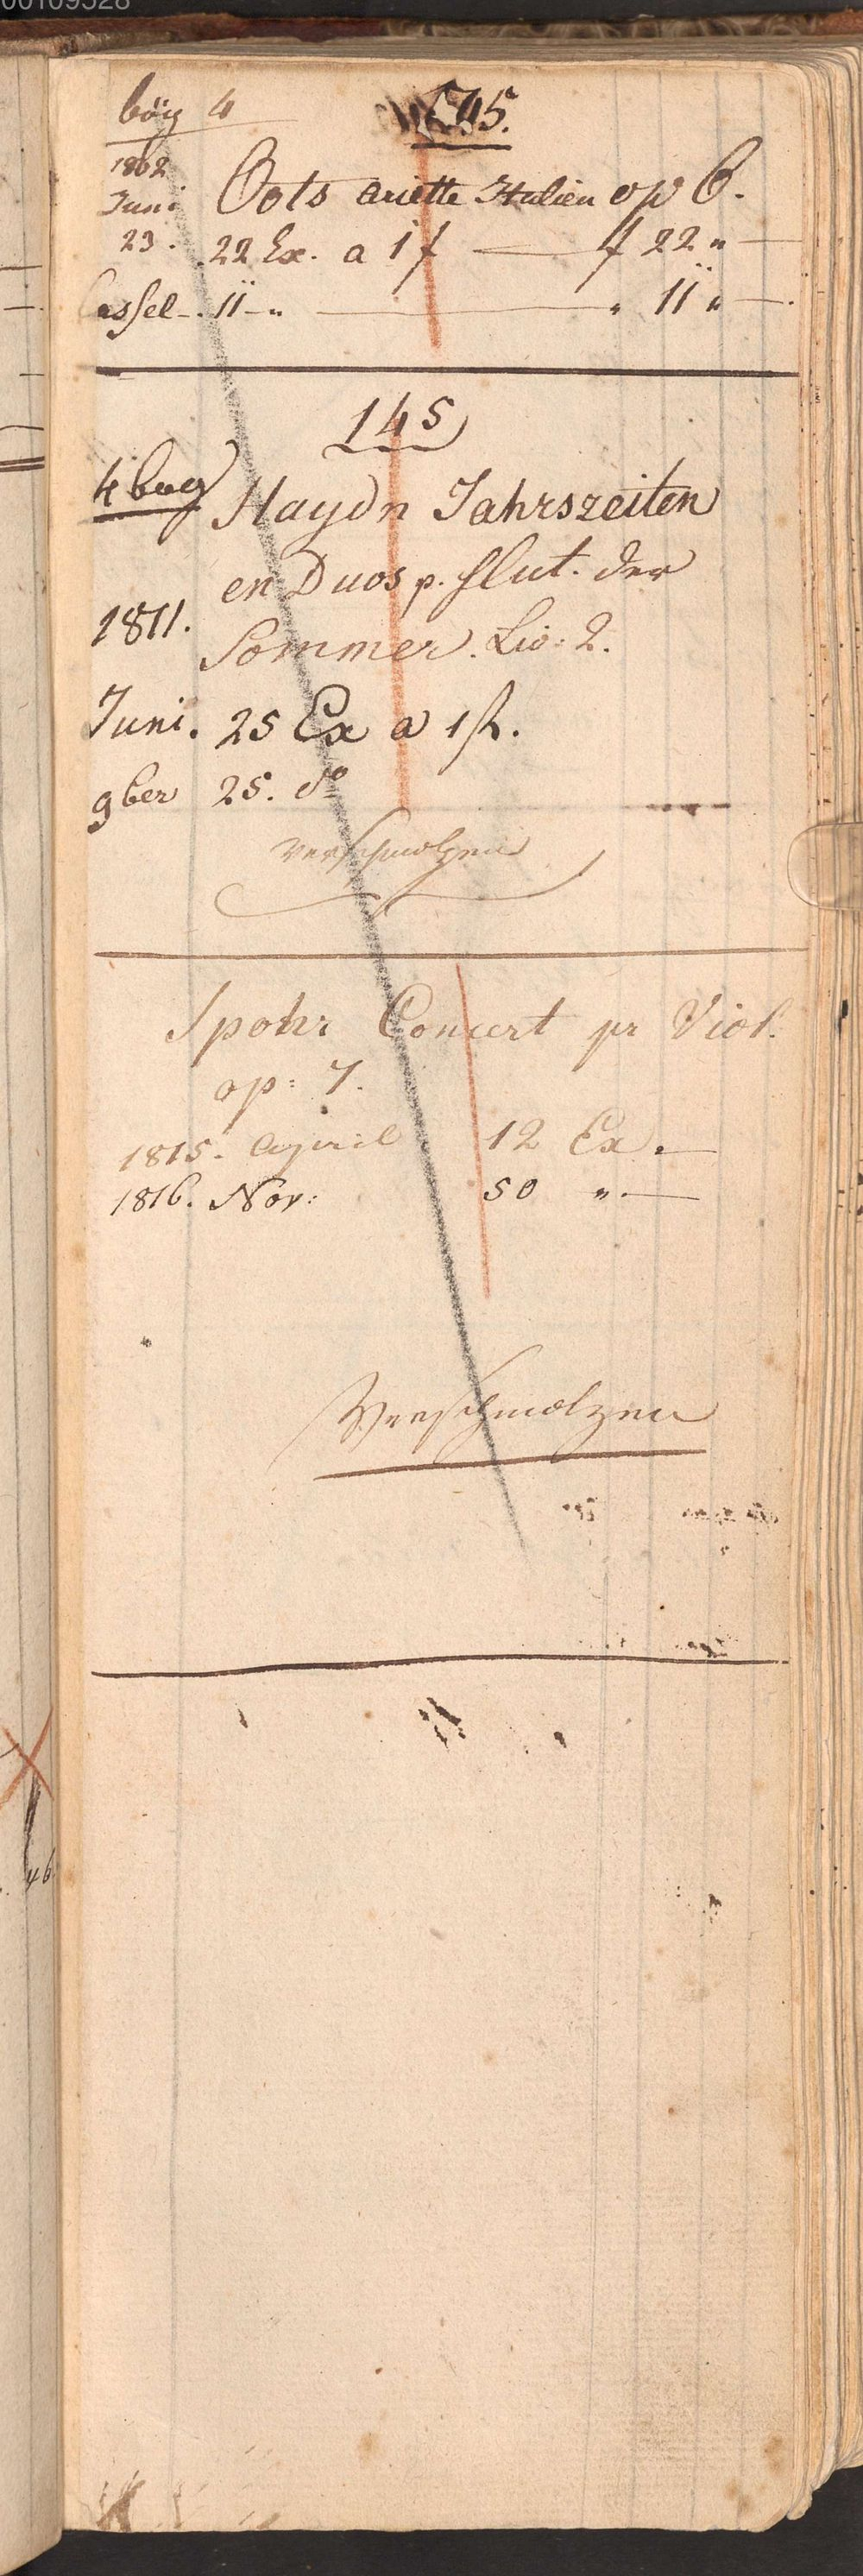 00109528
bög 4
145.
1802
Juni Oots ariette Italien op 6.
23. 22 Ex. a 1 f — f 22 " —
Cassel. 11 - " — " 11 " —.
145
4 bog Haydn Jahrszeiten
en Duos p. flut. der
1811.
Sommer. Liv: 2.
Juni. 25 Ex a 1 fl.
9ber 25. do
Verschmolzen
Spohr Concert pr Viol.
op: 7.
1815. April 12 Ex. —
1816. Nov: 50 ". —
Verschmolzen
46